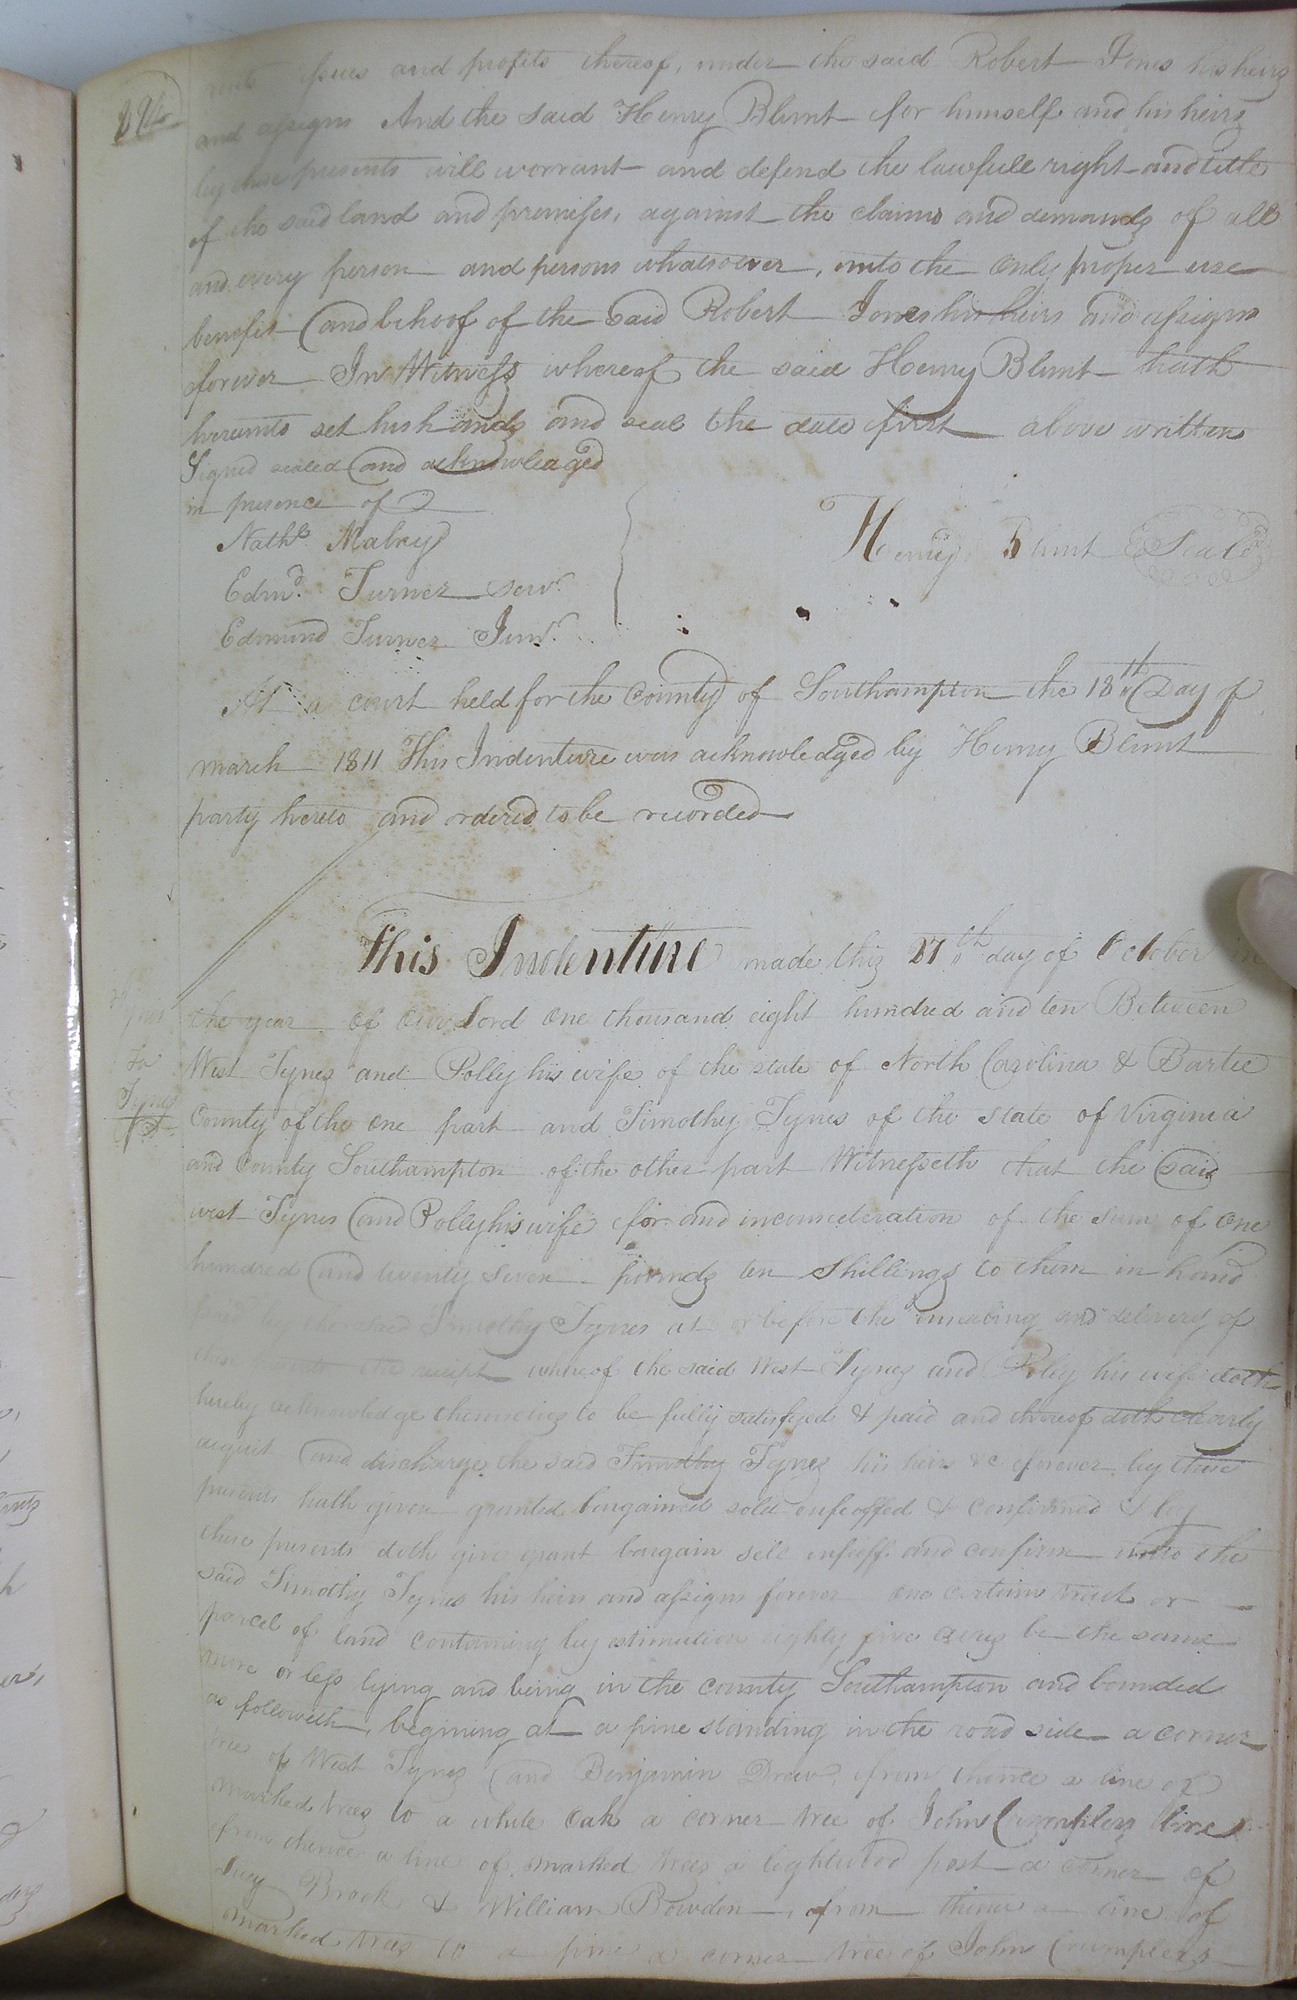 rents issues and profits thereof, under the said Robert Jones his heirs
and assigns And the said Henry Blunt for himself and his heirs
by these presents will worrant and defend the lawfull right and title
of the said land and premises, against the claims and demands of all
and every person and persons whatsoever, unto the only proper use
benefit and behoof of the said Robert Jones his heirs and assigns
forever In Witness whereof the said Henry Blunt hath
hereunto set his hands and seal the date first above written
Signed sealed and acknowledged
in presence of
Nathl Mabry
Edmd. Turner senr.
Edmund Turner Junr.
Henry Blunt Seal
At a court held for the County of Southampton the 18th Day of
march 1811 This Indenture was acknowledged by Henry Blunt
party hereto and ordered to be recorded
This Indenture made this 27th day of October in
the year of our Lord one thousand eight hundred and ten Between
West Tynes and Polly his wife of the state of North Carolina & Bartie
County of the one part and Timothy Tynes of the state of Virginia
and County Southampton of the other part Witnesseth that the said
Tynes
To
Tynes
west Tynes and Polly his wife for and inconsideration of the sum of one
hundred and twenty seven pounds ten shillings to them in hand
paid by the said Timothy Tynes at or before the ensealing and delivery of
these presents the receipt whereof the said West Tynes and Polly his wife doth
hereby acknowledge themselves to be fully satisfyed & paid and thereof doth clearly
acquit and discharge the said Timothy Tynes his heirs &c forever by these
presents hath given granted bargained sold enfeoffed & confirmed & by
these presents doth give grant bargain sell infeoff and confirm unto the
said Timothy Tynes his heirs and assigns forever one certain tract or
parcel of land containing by estimation eighty five acres be the same
more or less lying and being in the county Southampton and bounded
as followeth, begining at a pine standing in the road side a corner
tree of West Tynes and Benjamin Drew, from thence a line of
marked trees to a white oak a corner tree of John Crumplers line
from thence a line of marked trees a lightwood post a corner of
Brock & William Bowden, from thence a line of
marked trees to a pine a corner tree of John Crumplers